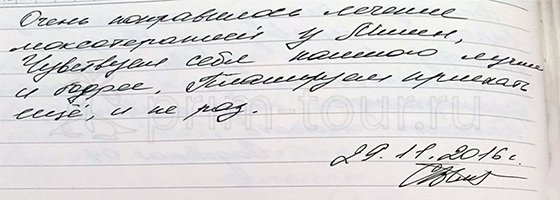 Очень понравилось лечение
моксотерапией у Япин,
Чувствуем себя намного лучше
и бодрее. Планируем приехать
ещё, и не раз.
prim-tour.ru
29.11.2016 г.